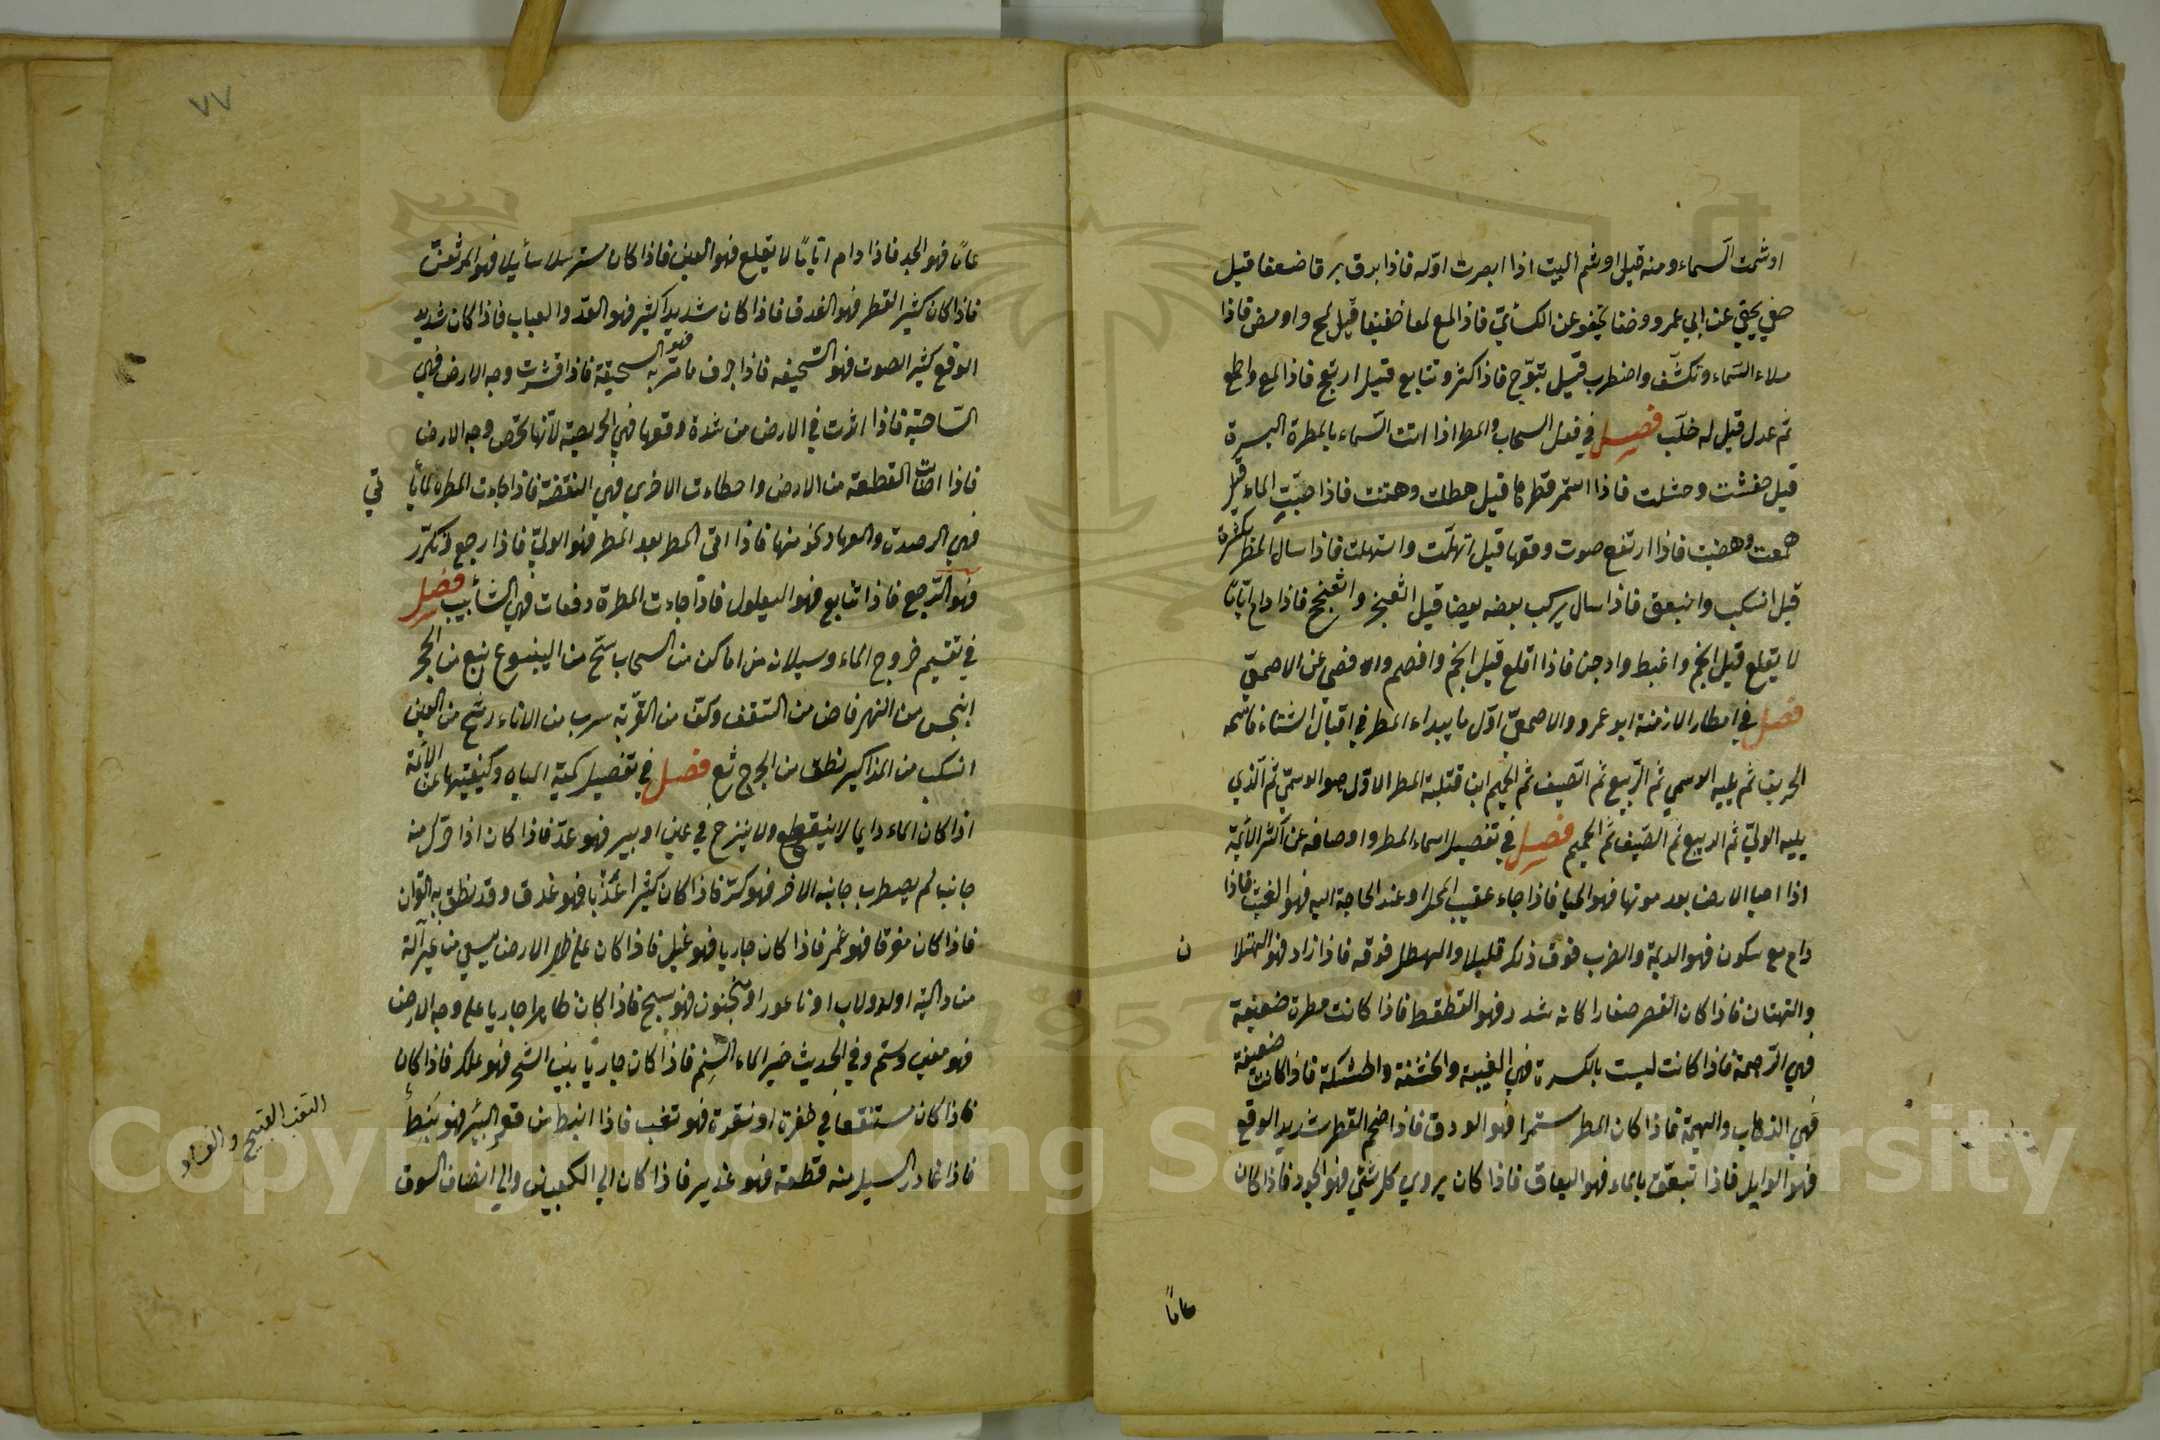 اوشمت السماء ومنه قيل اوشم البيت اذا ابصرت اوله فاذا برق برقا ضعفا قيل
خفي يخفي عن ابي عمرو وخفا يخفو عن الكسائي فاذا لمع لمعا خفيفا قيل لمح واومض فاذا
ملاء السماء وتكشف واضطرب قيل تبوج فاذا كثر وتتابع قيل ارتعج فاذا لمع واطمع
ثم عدل قيل له خلب فصل في فعل السحاب والمطر اذا اتت السماء بالمطرة اليسيرة
قيل حفشت وحشكت فاذا استمر قطرها قيل هطلت وهتنت فاذا صبت الماء قيل
همعت وهضبت فاذا ارتفع صوت وقعها قيل انهلت واستهلت فاذا سال المطر بكثرة
قيل انسكب وانبعق فاذا سال يركب بعضه بعضا قيل اثعنجر واثعنجح فاذا دام اياما
لا يقلع قيل اثجم واغبط وادجن فاذا اقلع قيل انجم وافصم وافصى عن الاصمعي
فصل في امطار الازمنة ابو عمرو والاصمعي اول ما يبداء المطر في اقبال الشتاء فاسمه
الخريف ثم يليه الوسمي ثم الربيع ثم الصيف ثم الحميم ابن قتيبة المطر الاول هو الوسمي ثم الذي
يليه الولي ثم الربيع ثم الصيف ثم الحميم فصل في تفصيل اسماء المطر واوصافه عن اكثر الائمة
اذا احيا الارض بعد موتها فهو الحيا فاذا جاء عقيب المحل او عند الحاجة اليه فهو الغيث فاذا
دام مع سكون فهو الديمة والضرب فوق ذلك قليلا والهطل فوقه فاذا زاد فهو الهتلا ن
والتهتان فاذا كان القطر صغارا كانه شذر فهو القطقط فاذا كانت مطرة ضعيفة
فهي الرهمة فاذا كانت ليست بالكثيرة فهي الغبية والحفشة والحشكة فاذا كانت ضعيفة
فهي الذهاب والهيمة فاذا كان المطر مستمرا فهو الودق فاذا ضخم القطر شديد الوقع
فهو الوابل فاذا تبعق بالماء فهو البعاق فاذا كان يروي كل شئ فهو الجود فاذا كان
عاما
٧٧
عاما فهو الجدا فاذا دام اياما لا يقلع فهو العين فاذا كان مسترسلا سايلا فهو المرثعن
فاذا كان كثير القطر فهو الغدق فاذا كان شديدا كثير فهو العد والعباب فاذا كان شديد
الوقع كثير الصوت فهو السحيفه فاذا جرف ما مر به فهو السحيقة فاذا قشرت وجه الارض فهي
الساحية فاذا اثرت في الارض من شدة وقعها فهي الحريصة لانها تحرص وجه الارض
فاذا اصابت القطعة من الارض واخطاءت الاخرى فهي النفضة فاذا جاءت المطرة لما يأ تي
فهي الرصدة والعهاد نحو منها فاذا اتى المطر بعد المطر فهو الولي فاذا رجع وتكرر
فهو الرجع فاذا تتابع فهو اليعلول فاذا جاءت المطرة دفعات فهي الشآبيب فصل
في تقسيم خروج الماء وسيلانه من اماكن من السحاب سح من الينبوع نبع من الحجر
انبجس من النهر فاض من السقف وكف من القربة سرب من الاناء رشح من العين
انسكب من المذاكير نطف من الجرح ثع فصل في تفصيل كمية المياه وكيفيتها عن الائمة
اذا كان الماء دايما لا ينقطع ولا ينزح في عين او بير فهو عد فاذا كان اذا حرك منه
جانب لم يضطرب جانبه الاخر فهو كر فاذا كان كثيرا عذبا فهو غدق وقد نطق به القران
فاذا كان مغرقا فهو غمر فاذا كان جاريا فهو غيل فاذا كان على ظهر الارض يسقي من غير آلة
من دالية او دولاب او ناعورا او منجنون فهو سيح فاذا كان ظاهرا جاريا على وجه الارض
فهو معين وسنم وفي الحديث خير الماء السنم فاذا كان جاريا بين الشجر فهو غلل فاذا كان
فاذا كان مستنقعا في حفرة او نقرة فهو ثغب فاذا انبط من قعر البير فهو نبط
فاذا غادر السيل منه قطعة فهو غدير فاذا كان الى الكعبين والى انصاف السوق